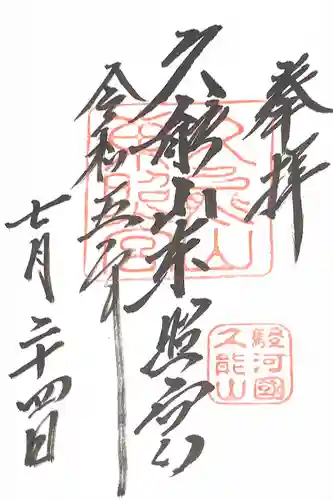 奉拝
久能山東照宮
令和五年
七月二十四日
久能山
東照宮
駿河國
久能山